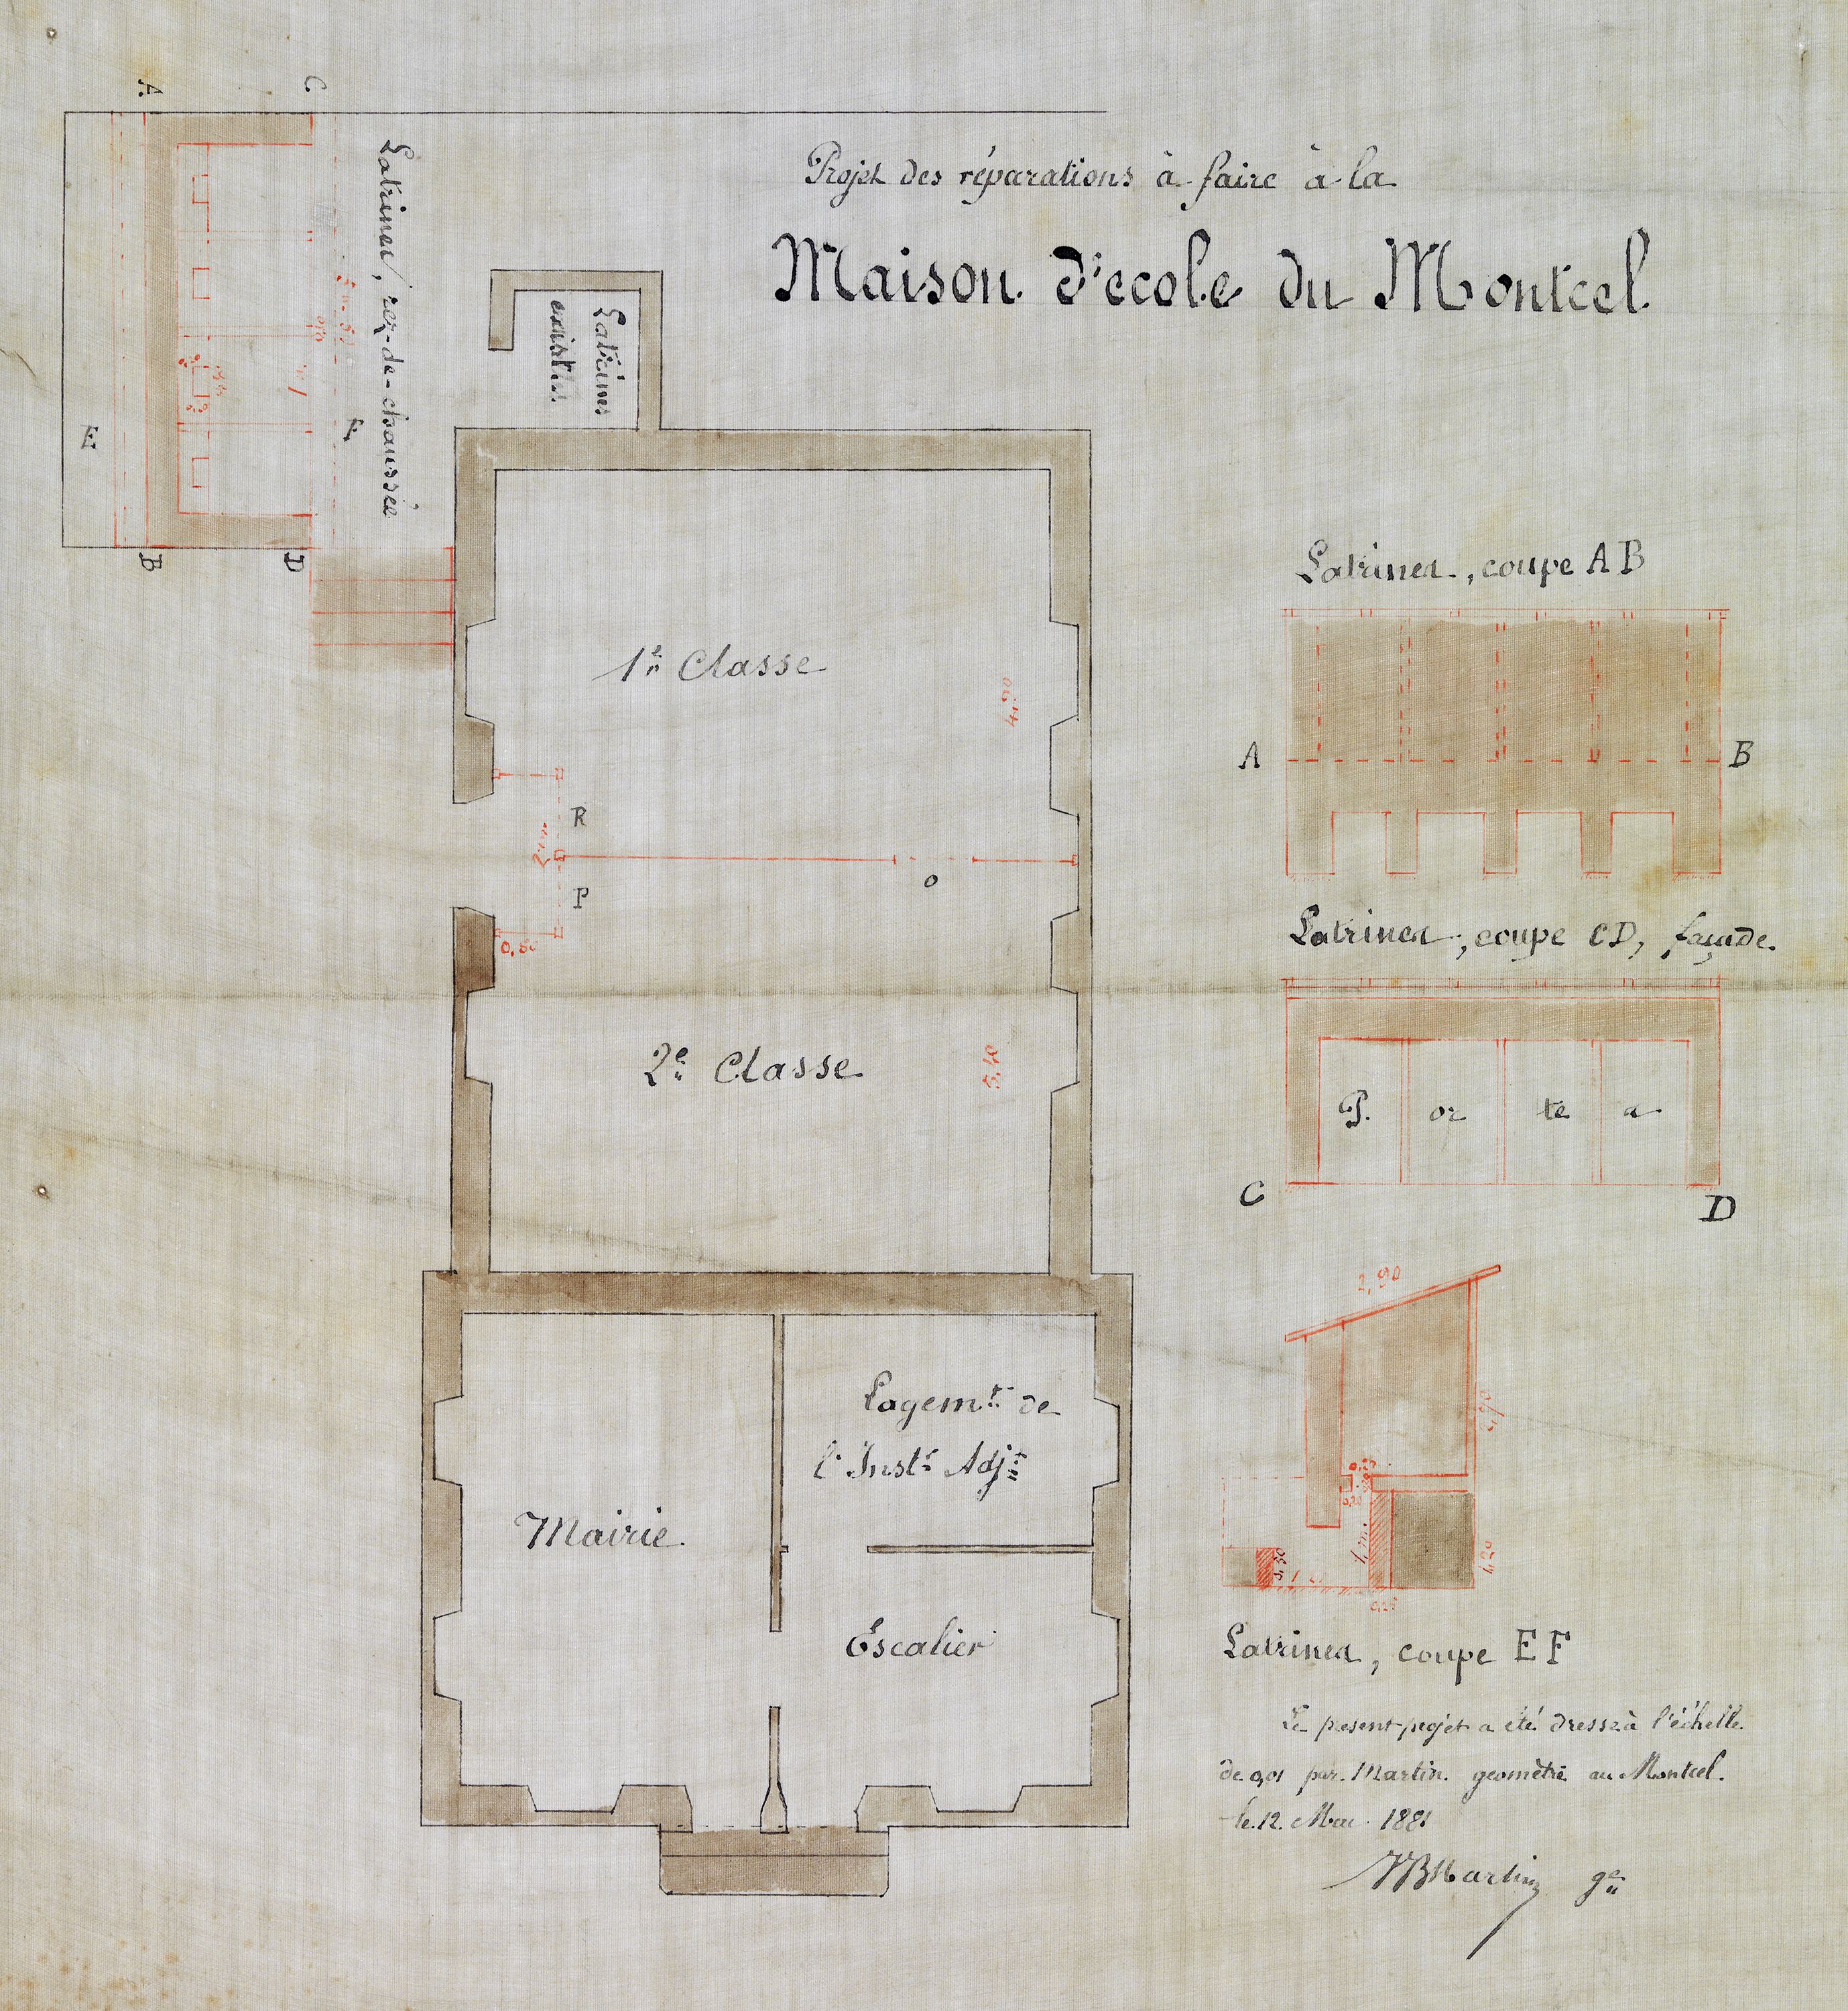 Projet des réparations à faire à la
Maison d'ecole du Montcel
A
C.
Latrines, rez-de-chaussée
E
F
B
D
Latrines
1re Classe
4,50
R
2m
P
0,80
O
2e Classe
5,40
Mairie
Logemt de
l'Instr Adjt
Escalier
Latrines, coupe AB
A
B
Latrines, coupe CD, façade.
P. or te s
C
D
2,90
1,20
Latrines, coupe EF
Le present projet a été dressé à l'échelle
de 0,01 par Martin géomètre au Montcel.
le 12 Mai 1881
JB Martin gre